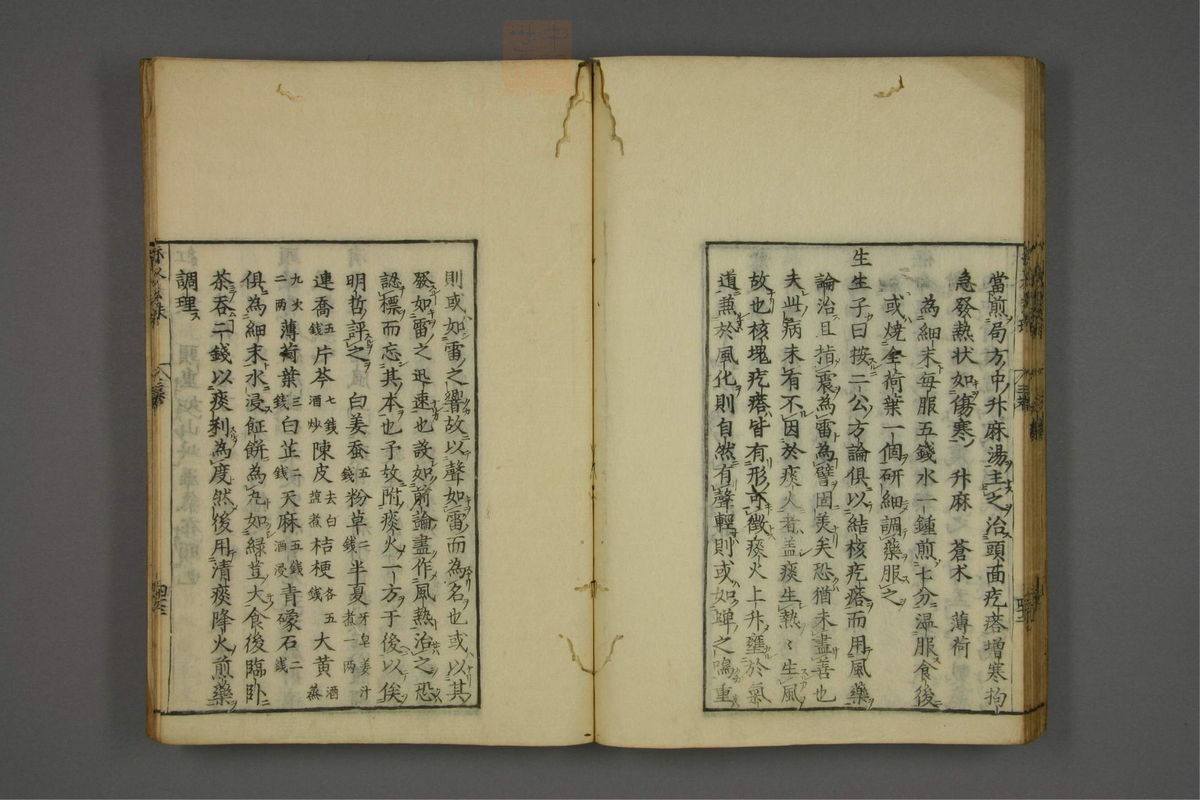 當煎局方中升麻湯主之治頭面疙瘩增寒拘
急發熱状如傷寒　升麻　蒼术　薄荷
為細末每服五錢水一鍾煎七分温服食後
或燒全荷葉一個研細調藥服之
生生子曰按二公方論俱以結核疙瘩而用風藥
論治且指震為雷為譬固美矣恐猶未盡善也
夫此病未有不因於痰火者盖痰生熱〻生風
故也核塊疙瘩皆有形可徵痰火上升壅於氣
道兼於風化則自然有聲輕則或如蟬之鳴重
則或如雷之響故以聲如雷而為名也或以其
發如雷之迅速也設如前論盡作風熱治之恐
認標而忘其本也予故附痰火一方于後以俟
明哲評之　白姜蚕五錢粉草二錢半夏牙皂姜汁煮一兩
連喬五錢片芩七錢酒炒陳皮去白鹽煮桔梗各五錢大黄酒蒸
九次二兩薄荷葉三錢白芷二錢天麻五錢酒浸青礞石二錢
俱為細末水浸飪餅為丸如緑豈大食後臨卧
茶吞二錢以痰利為度然後用清痰降火煎藥
調理